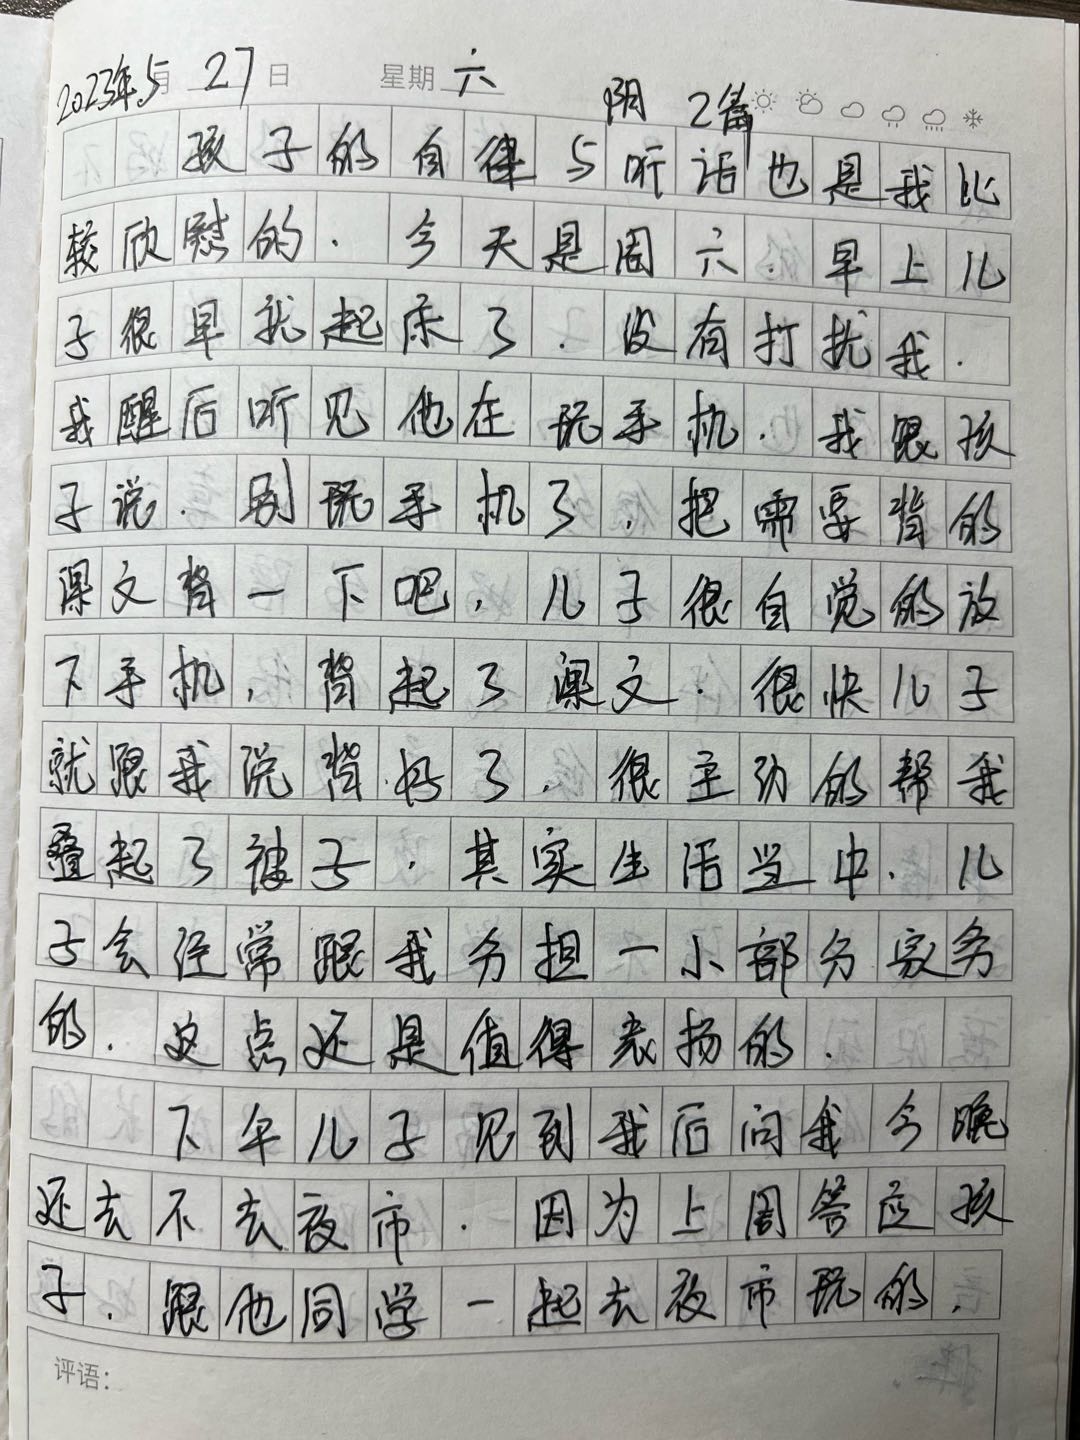 2023年5月27日 星期六 阴 2篇
孩子的自律与听话也是我比
较欣慰的.今天是周六.早上儿
子很早就起床了.没有打扰我.
我醒后听见他在玩手机.我跟孩
子说.别玩手机了,把需要背的
课文背一下吧,儿子很自觉的放
下手机,背起了课文.很快儿子
就跟我说背好了.很主动的帮我
叠起了被子,其实生活当中.儿
子会经常跟我分担一小部分家务
的.这点还是值得表扬的.
下午儿子见到我后问我今晚
还去不去夜市.因为上周答应孩
子.跟他同学一起去夜市玩的,
评语: